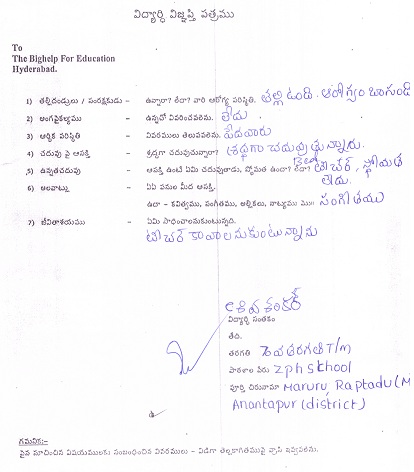 విద్యార్థి విజ్ఞప్తి పత్రము
To
The Bighelp For Education
Hyderabad.
1) తల్లిదండ్రులు / సంరక్షకుడు - ఉన్నారా? లేదా? వారి ఆరోగ్య పరిస్థితి. తల్లి ఉంది. ఆరోగ్యం బాగుంది
2) అంగవైకల్యము - ఉన్నచో వివరించవలెను. లేదు
3) ఆర్థిక పరిస్థితి - వివరములు తెలుపవలెను. పేదవారు
4) చదువు పై ఆసక్తి - శ్రద్ధగా చదువుచున్నారా? శ్రద్ధగా చదువుతున్నారు.
5) ఉన్నతచదువు - ఆసక్తి ఉంటే ఏమి చదువుతాడు, స్తోమత ఉందా? లేదా? టీచర్, స్తోమత లేదు.
6) అలవాట్లు - ఏఏ పనుల మీద ఆసక్తి.
ఉదా - కవిత్వము, సంగీతము, అల్లికలు, నాట్యము మొ॥ సంగీతము
7) జీవితాశయము - ఏమి సాధించాలనుకుంటున్నది.
టీచర్ కావాలనుకుంటున్నాను
శివ శంకర్
విద్యార్థి సంతకం
తేది.
తరగతి 7వ తరగతి T/m
పాఠశాల పేరు zph school
పూర్తి చిరునామా Maruru, Raptadu (M
Anantapur (district)
గమనిక:-
పైన సూచించిన విషయములకు సంబంధించిన వివరములు - విడిగా తెల్లకాగితముపై వ్రాసి ఇవ్వవలెను.